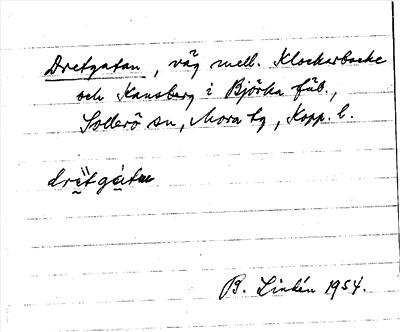 Dretgatan, väg mell. Klockarbacke
och Kansberg i Björka fäb.,
Sollerö sn, Mora tg, Kopp. l.
drètgátu
B. Lindén 1954.